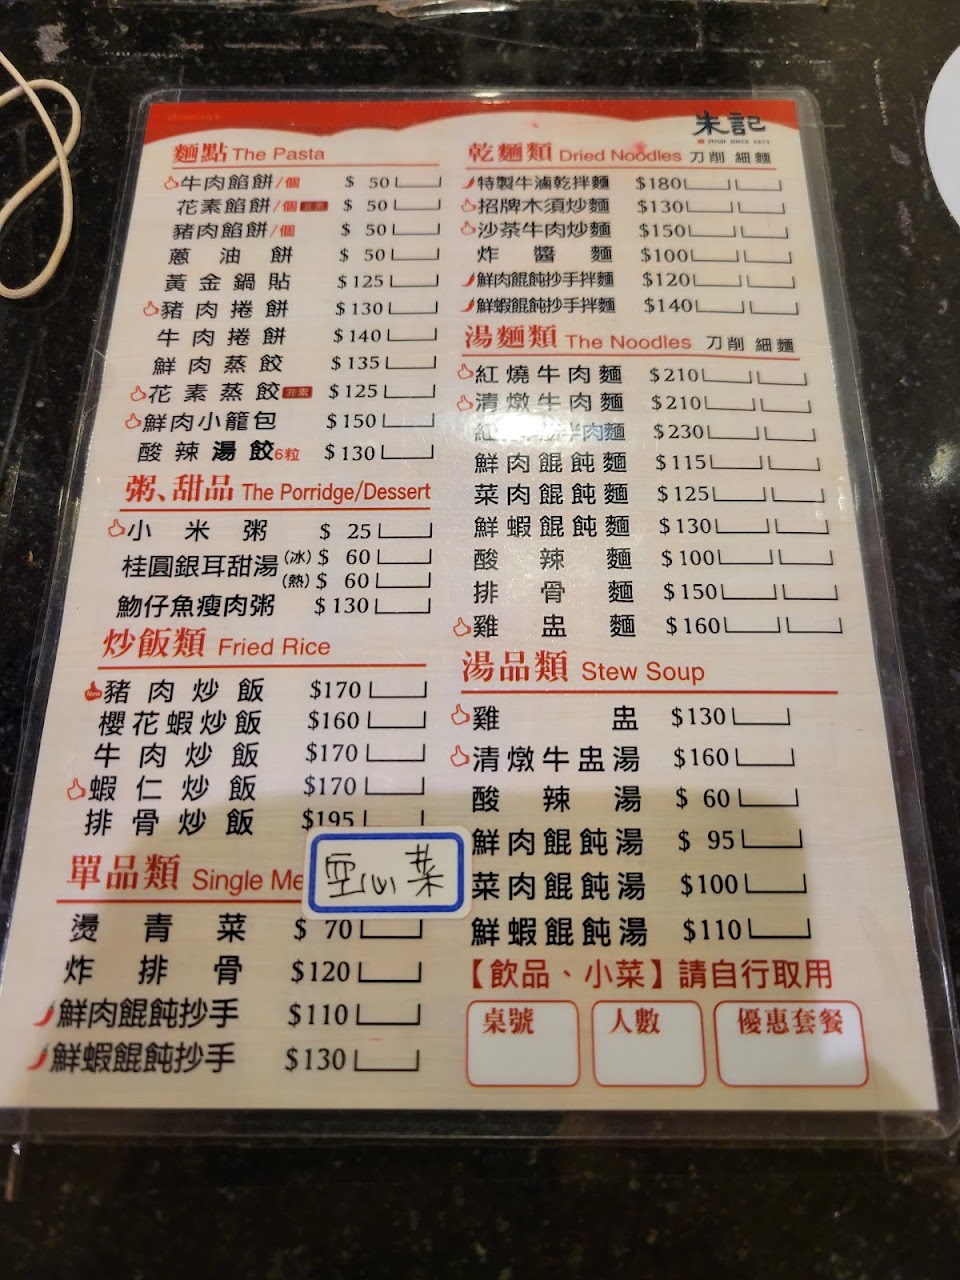 朱記
ZHUJI SINCE 1973
麵點 The Pasta
牛肉餡餅/個 $ 50
花素餡餅/個 非素 $ 50
豬肉餡餅/個 $ 50
蔥油餅 $ 50
黃金鍋貼 $125
豬肉捲餅 $130
牛肉捲餅 $140
鮮肉蒸餃 $135
花素蒸餃 非素 $125
鮮肉小籠包 $150
酸辣湯餃6粒 $130
粥、甜品 The Porridge/Dessert
小米粥 $ 25
桂圓銀耳甜湯 (冰) $ 60
(熱) $ 60
魩仔魚瘦肉粥 $130
炒飯類 Fried Rice
New 豬肉炒飯 $170
櫻花蝦炒飯 $160
牛肉炒飯 $170
蝦仁炒飯 $170
排骨炒飯 $195
單品類 Single Me
空心菜
燙青菜 $ 70
炸排骨 $120
鮮肉餛飩抄手 $110
鮮蝦餛飩抄手 $130
乾麵類 Dried Noodles 刀削 細麵
特製牛滷乾拌麵 $180
招牌木須炒麵 $130
沙茶牛肉炒麵 $150
炸醬麵 $100
鮮肉餛飩抄手拌麵 $120
鮮蝦餛飩抄手拌麵 $140
湯麵類 The Noodles 刀削 細麵
紅燒牛肉麵 $210
清燉牛肉麵 $210
紅 半肉麵 $230
鮮肉餛飩麵 $115
菜肉餛飩麵 $125
鮮蝦餛飩麵 $130
酸辣麵 $100
排骨麵 $150
雞盅麵 $160
湯品類 Stew Soup
雞盅 $130
清燉牛盅湯 $160
酸辣湯 $ 60
鮮肉餛飩湯 $ 95
菜肉餛飩湯 $100
鮮蝦餛飩湯 $110
【飲品、小菜】請自行取用
桌號 人數 優惠套餐